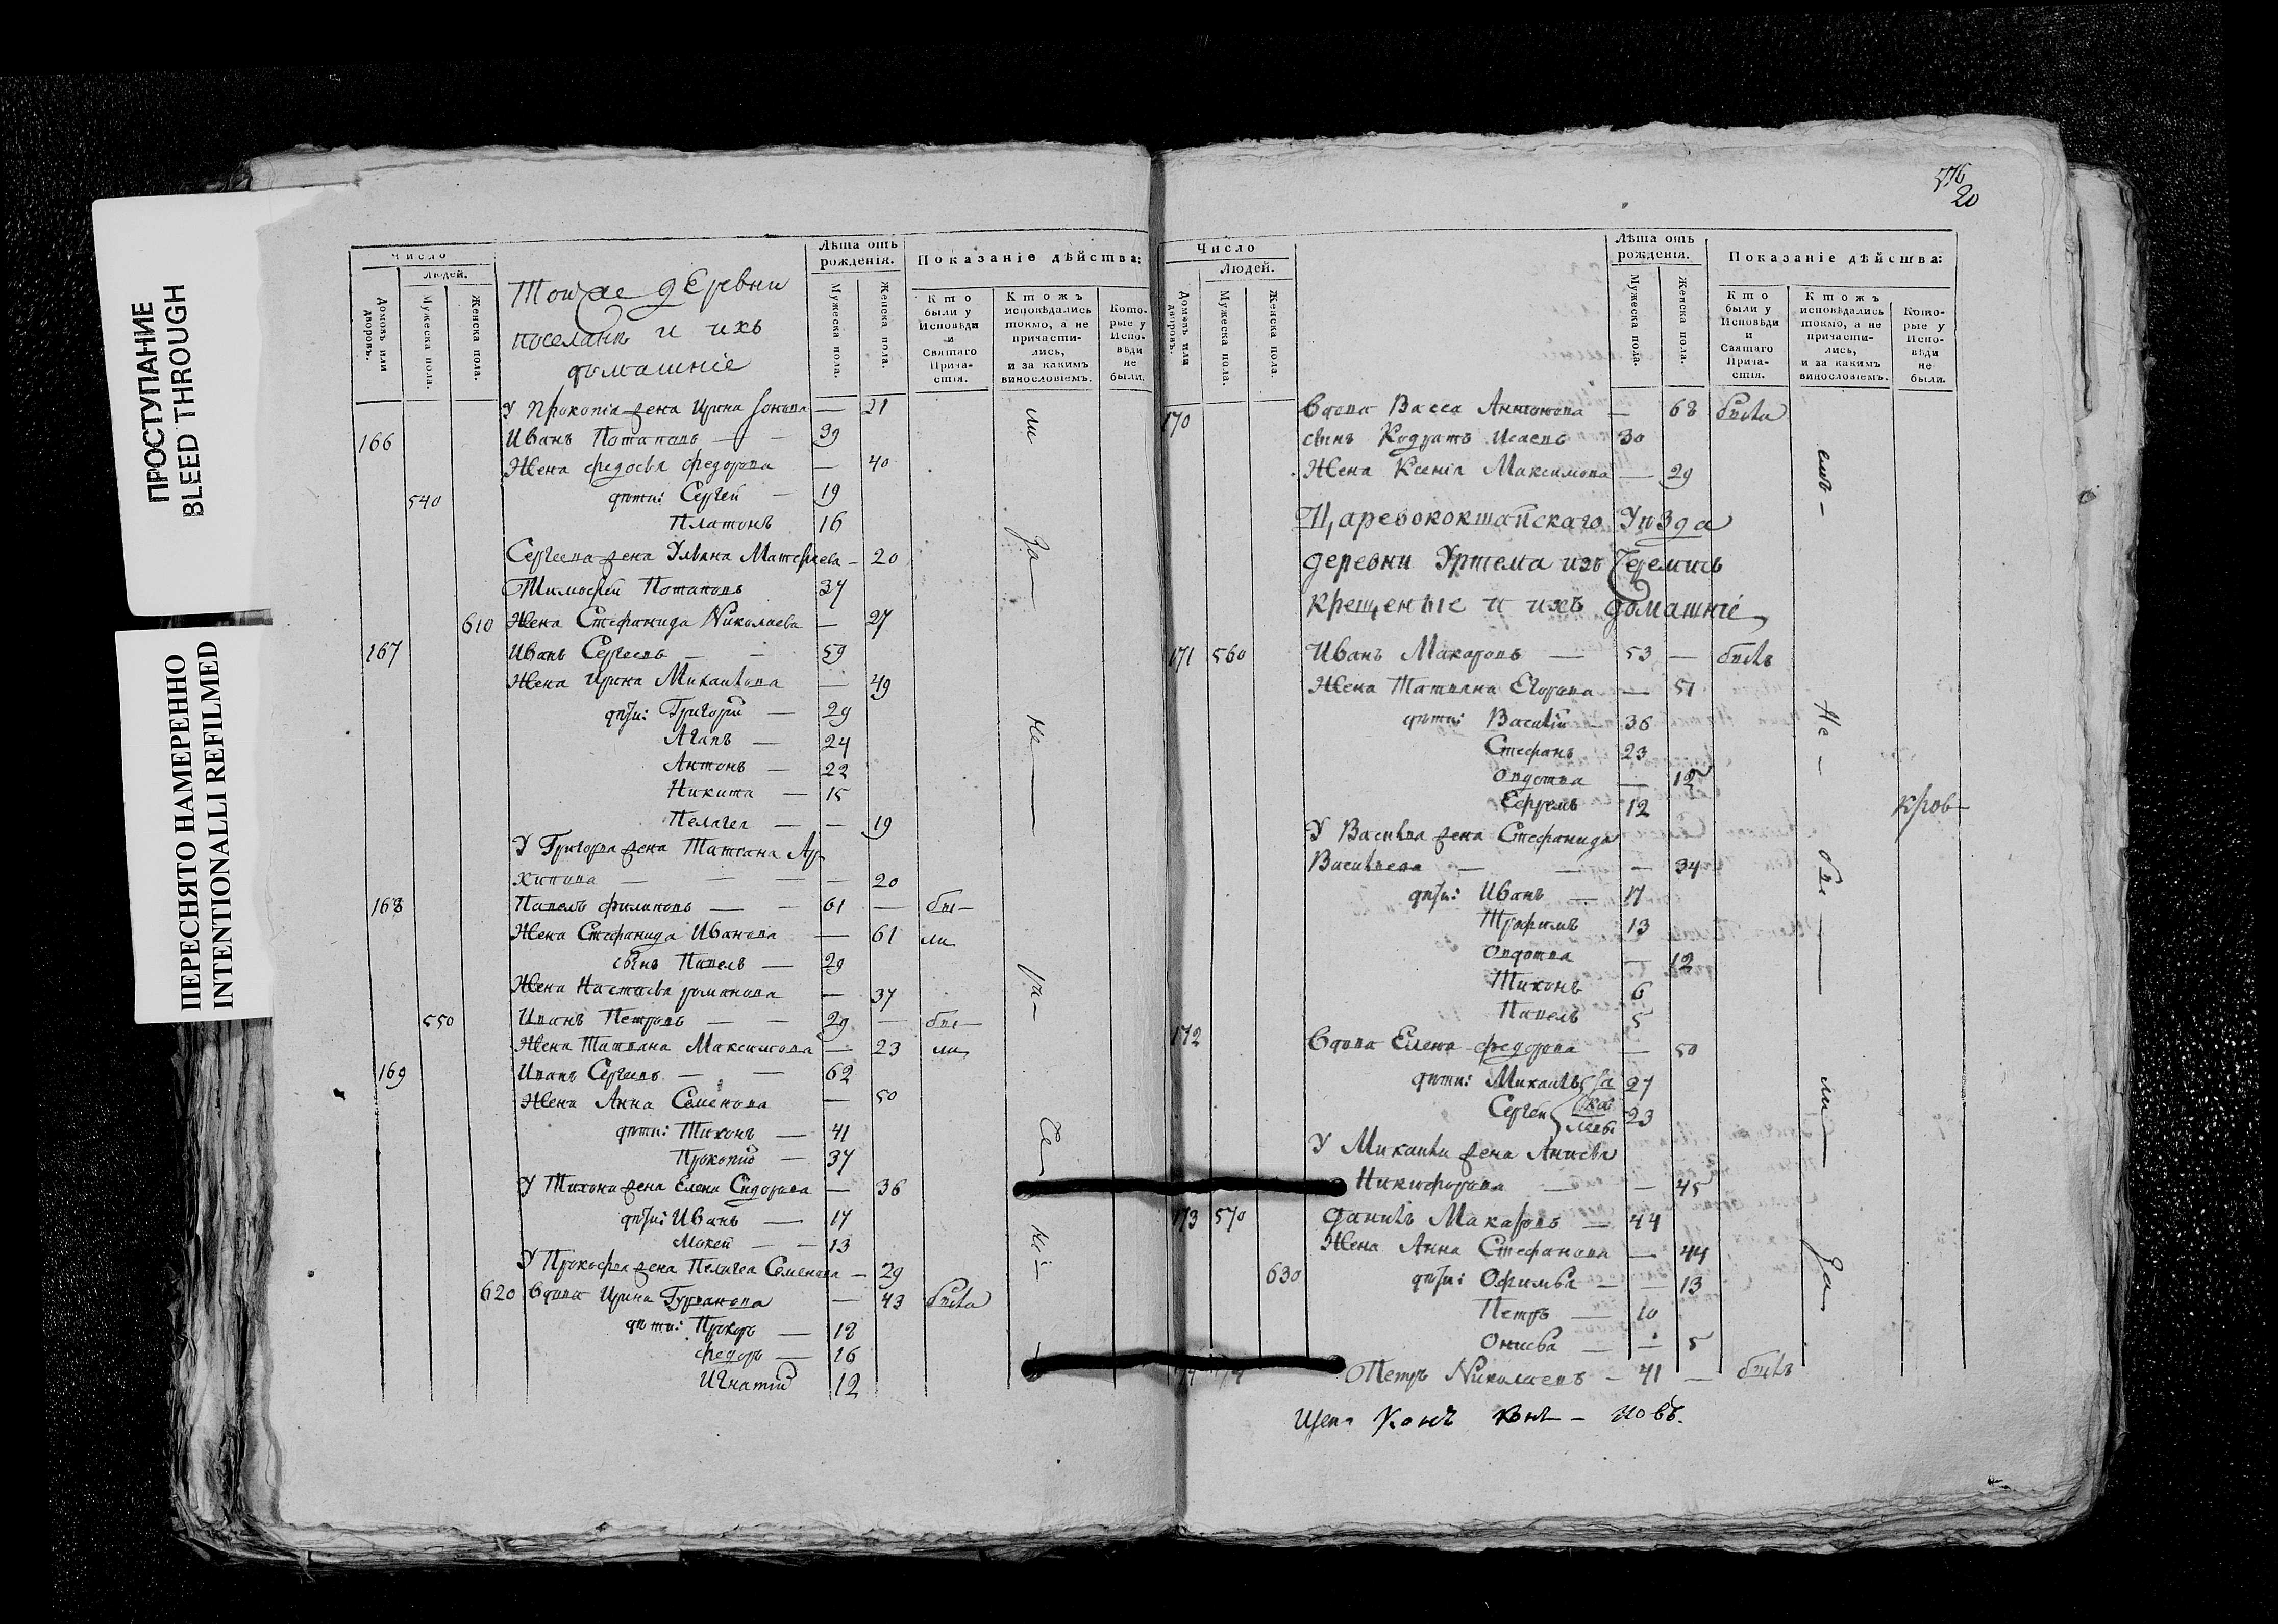 ПРОСТУПАНИЕ
BLEED THROUGH
ПЕРЕСНЯТО НАМЕРЕННО
INTENTIONALLI REFILMED
Число
Людей.
Домовъ или дворовъ.
Мужеска пола.
Женска пола.
Тойже деревни
поселянъ и ихъ
домашніе
Лѣта отъ рожденія.
Мужеска пола.
Женска пола.
Показаніе дѣйства:
Кто были у Исповѣди и Святаго Прича-стія.
Ктожъ исповѣдались токмо, а не причасти-лись, и за какимъ винословіемъ.
Кото-рые у Испо-вѣди не были.
У Прокопія жена Ирина — 21
166 Иванъ Потаповъ — — 39
Жена Федосья Федорова — 40
540 дѣти: Сергей — 19
Платонъ 16
Сергеева жена Ульяна Матфеева — 20
Тимофей Потаповъ 37
610 Жена Стефанида Николаева — 27
167 Иванъ Сергеевъ — — 59
Жена Ирина Михайлова — 49
дѣти: Григорій — 29
Агапъ — 24
Антонъ — 22
Никита — 15
Пелагея — — 19
У Григорья жена Татіана Ар
хипова — — — — 20
168 Павелъ Филиповъ — — 61 — бы—
Жена Стефанида Иванова — 61 ли
сынъ Павелъ — 29
Жена Настасья Романова — 37
550 Иванъ Петровъ — — 29 — бы—
Жена Татьяна Максимова — 23 ли
169 Иванъ Сергеевъ — — 62
Жена Анна Семенова — 50
дѣти: Тихонъ — 41
Прокопій — 37
У Тихона жена Елена Сидорова — 36
дѣти: Иванъ — 17
Мокей — — 13
У Прокофья жена Пелагея Семенова — 29
620 Вдова Ирина — 43 была
дѣти: Прохоръ — 18
Федоръ — 16
Игнатій 12
ли
За—
не—
ра—
се—
576
20
Число
Людей.
Домовъ или дворовъ.
Мужеска пола.
Женска пола.
Лѣта отъ рожденія.
Мужеска пола.
Женска пола.
Показаніе дѣйства:
Кто были у Исповѣди и Святаго Прича-стія.
Ктожъ исповѣдались токмо, а не причасти-лись, и за какимъ винословіемъ.
Кото-рые у Испо-вѣди не были.
170 Вдова Васса Антонова — 68 была
сынъ Кодратъ Исаевъ 30
Жена Ксенія Максимова — 29
Царевококшайскаго Уѣзда
деревни Уртема изъ Черемисъ
крещеные и ихъ домашніе
171 560 Иванъ Макаровъ — 53 — былъ
Жена Татьяна Егорова — 51
дѣти: Василій 36
Стефанъ 23
Овдотья — 12
Ефремъ 12
У Василья жена Стефанида
Васильева — — — 34
дѣти: Иванъ — 17
Трофимъ 13
Овдотья — 12
Тихонъ 6
Павелъ 5
172 Вдова Елена Федорова — 50
дѣти: Михаилъ 27
Сергей 23
У Михаила жена Анисья
Никифорова — — 45
173 570 Данилъ Макаровъ — 44
Жена Анна Стефанова — 44
630 дѣти: Офимья — — 13
Петръ — 10
Онисья — — 5
Петръ Николаевъ — 41 — былъ
емъ—
Не—
бы—
ли—
За
кров—